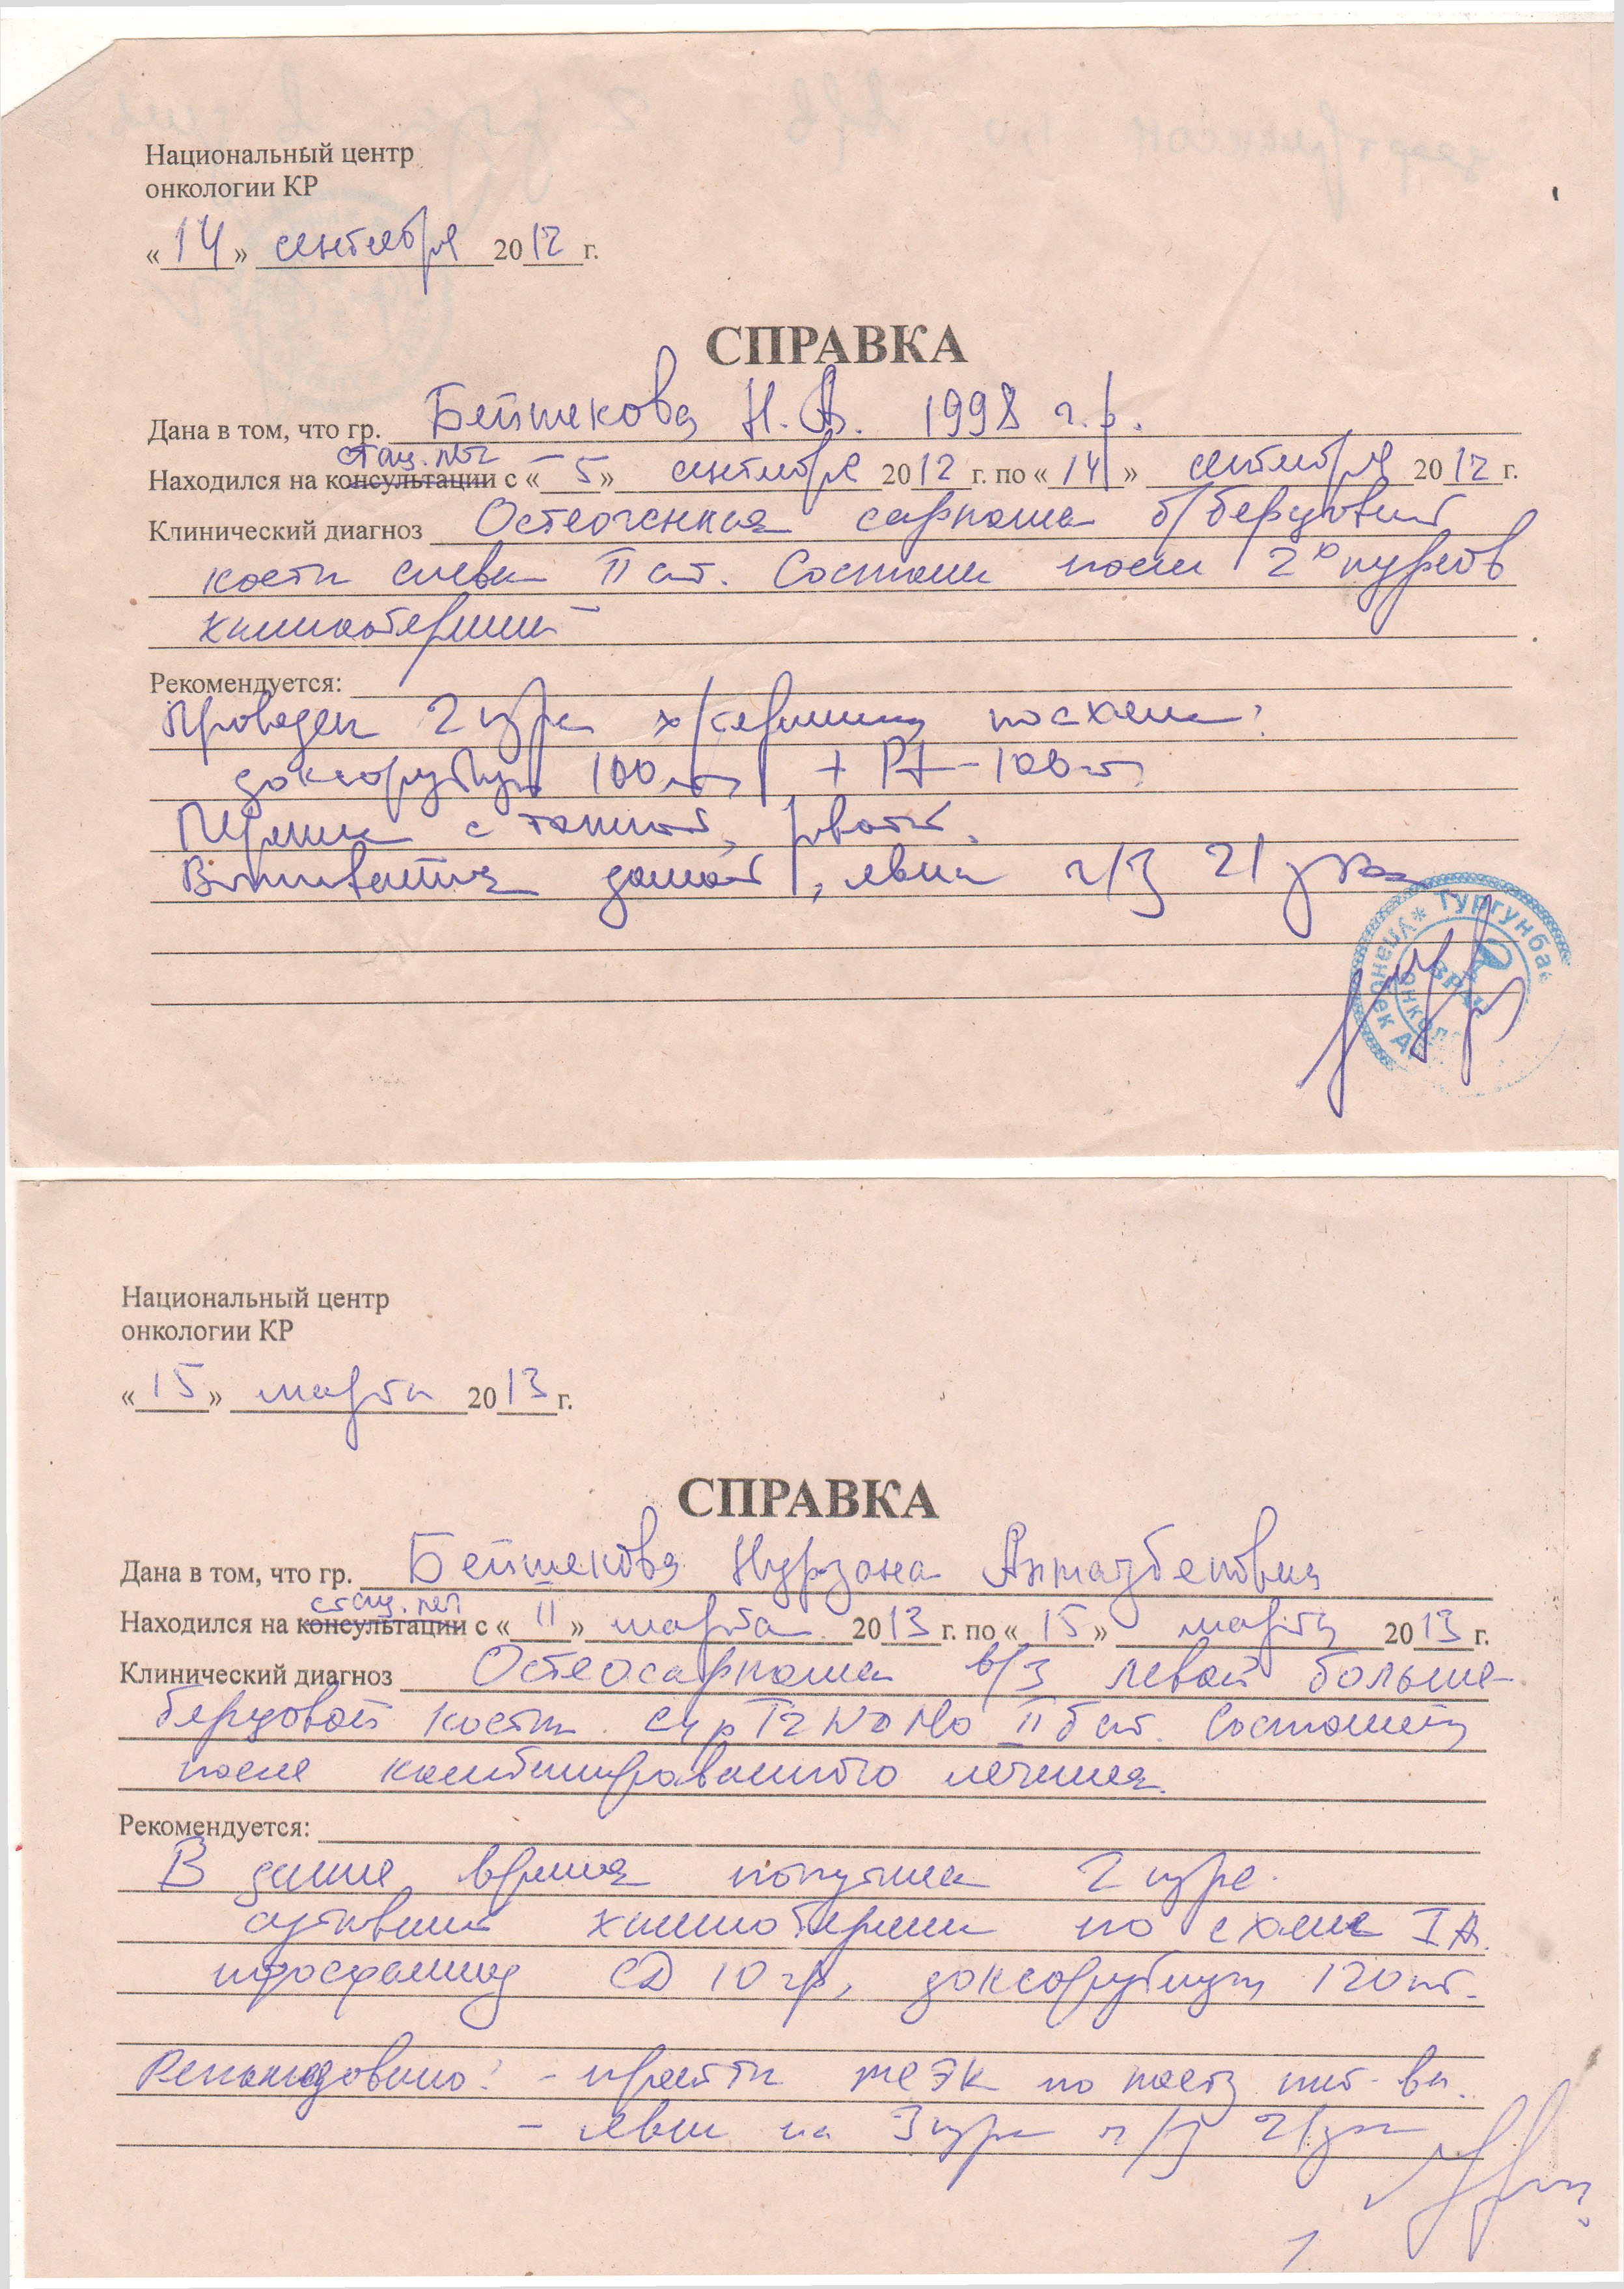 Национальный центр
онкологии КР
«14» сентября 2012 г.
СПРАВКА
Дана в том, что гр. Бейшекова Н.А. 1998 г.р.
стац. леч
Находился на консультации с «5» сентября 2012 г. по «14» сентября 2012 г.
Клинический диагноз Остеогенная саркома б/берцовой
кости слева II ст. Состояние после 2х курсов
химиотерапии
Рекомендуется:
Проведен 2 курс х/терапии по схеме:
доксорубицин 100мг + Pt-100мг
с тошнотой, рвотой.
Выписывается домой, явка ч/з 21 день
Тургунба
Врач
Национальный центр
онкологии КР
«15» марта 2013 г.
СПРАВКА
Дана в том, что гр. Бейшекова Нурзана
стац. леч
Находился на консультации с «11» марта 2013 г. по «15» марта 2013 г.
Клинический диагноз Остеосаркома в/з левой больше-
берцовой кости. T2N0M0 IIб ст. Состояние
после комбинированного лечения.
Рекомендуется:
В данное время получила 2 курс
химиотерапии по схеме IA
СД 10 гр, доксорубицин 120мг.
Рекомендовано: - пройти МСЭК по месту жит-ва.
- явка на 3 курс ч/з 21 день